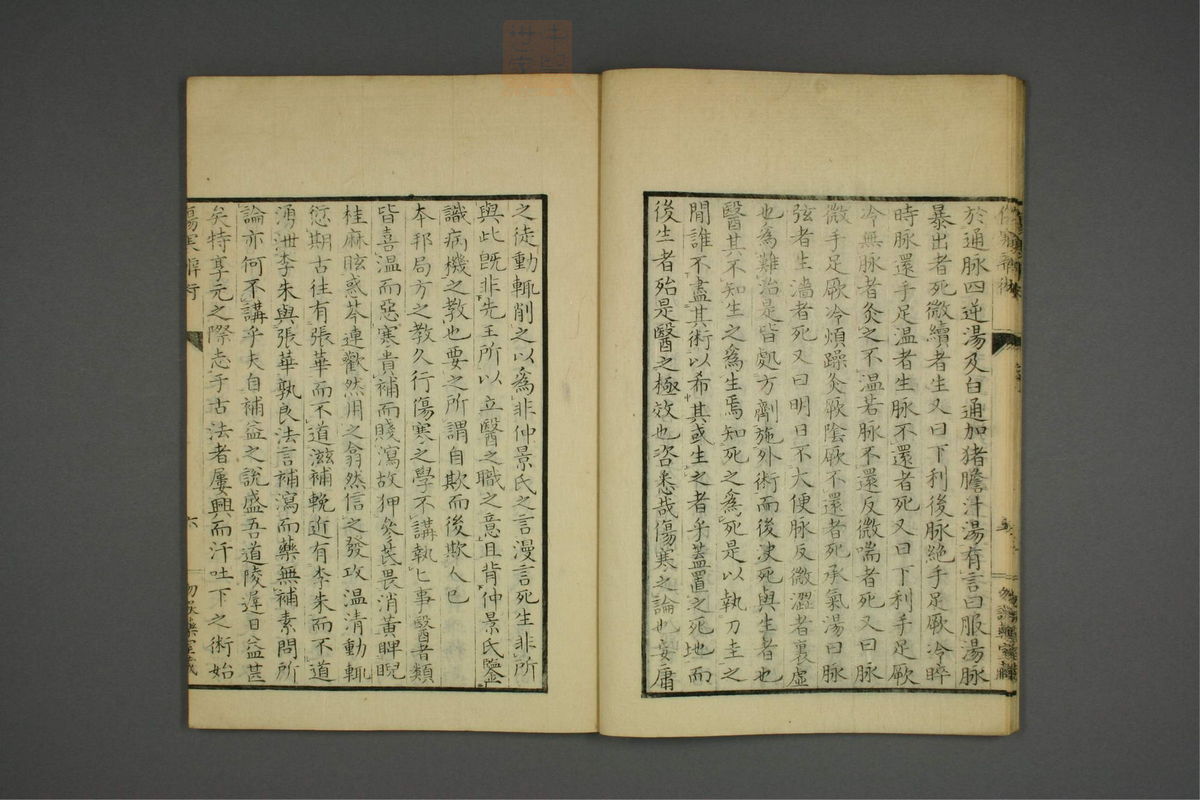 於通脉四逆湯及白通加猪膽汁湯有言曰服湯脉
暴出者死微續者生又曰下利後脉絶手足厥冷晬
時脉還手足温者生脉不還者死又曰下利手足厥
冷無脉者灸之不温若脉不還反微喘者死又曰脉
微手足厥冷煩躁灸厥陰厥不還者死承氣湯曰脉
弦者生濇者死又曰明日不大便脉反微澀者裏虚
也為難治是皆処方劑施外術而後决死與生者也
醫其不知生之為生焉知死之為死是以執刀圭之
間誰不盡其術以希其或生之者乎蓋置之死地而
後生者殆是醫之極效也恣悉哉傷寒之論也妄庸
之徒動輙削之以為非仲景氏之言漫言死生非所
與此既非先王所以立醫之職之意且背仲景氏鑒
識病機之教也要之所謂自欺而後欺人已
本邦局方之教久行傷寒之學不講執匕事醫者類
皆喜温而惡寒貴補而賤瀉故狎參茋畏消黄睥睨
桂麻眩惑芩連歡然用之翕然信之發攻温清動輙
愆期古往有張華而不道滋補輓近有李朱而不道
湧泄李朱與張華孰良法言補瀉而藥無補素問所
論亦何不講乎夫自補益之說盛吾道陵遅日益甚
矣特享元之際志乎古法者屢興而汗吐下之術始
傷寒解
六